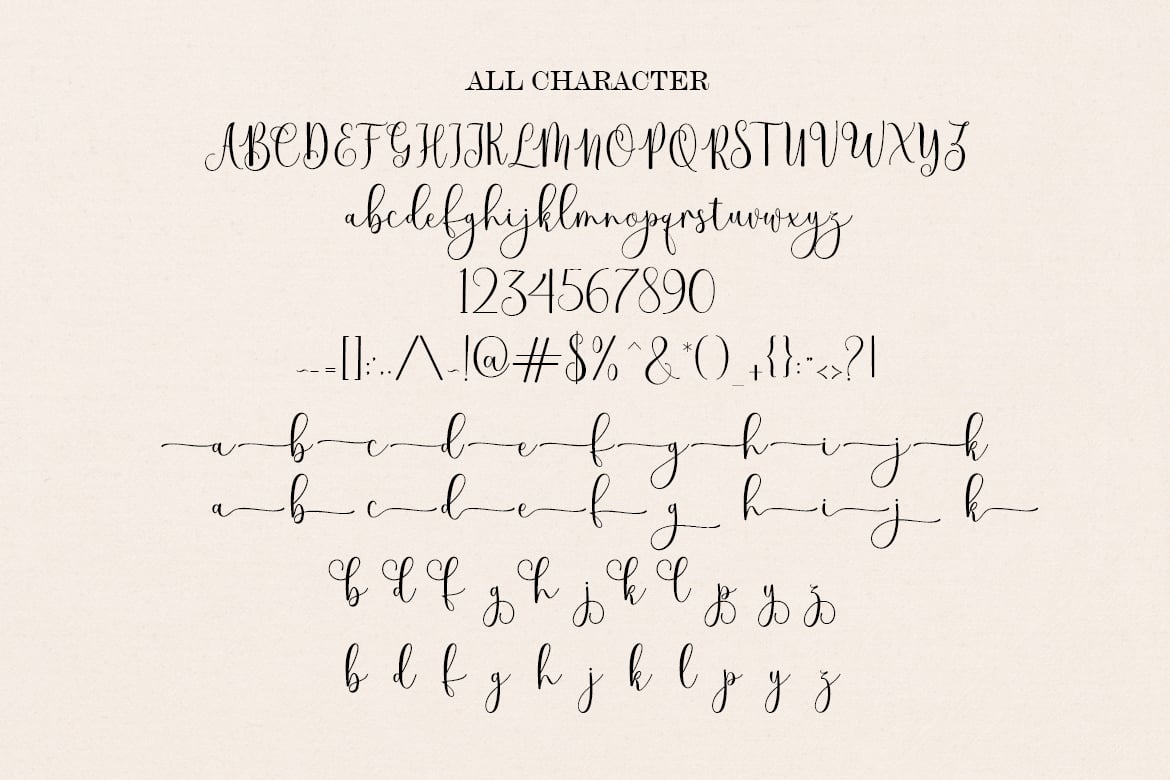 ALL CHARACTER
ABCDEFGHIJKLMNOPQRSTUVWXYZ
abcdefghijklmnopqrstuvwxyz
1234567890
~-=[];',./\~!@#$%^&*()_+{}:"<>?|
a b c d e f g h i j k
a b c d e f g h i j k
b d f g h j k l p y z
b d f g h j k l p y z